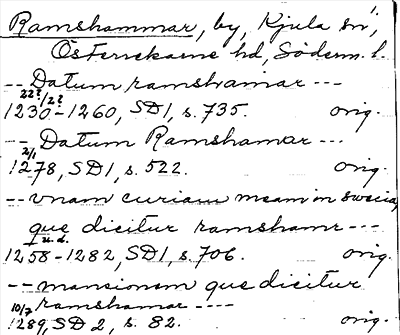 Ramshammar, by, Kjula sn,
Österrekarne hd, Söderm. l.
-- Datum ramshamar ---
22?/2?
1230-1260, SD1, s. 735. orig.
-- Datum Ramshamar ---
2/1
1278, SD1, s. 522. orig.
-- vnam curiam meam in swecia,
que dicitur ramshamr ---
u. d.
1258-1282, SD1, s. 706. orig.
-- mansionem que dicitur
ramshamar ----
10/7
1289, SD 2, s. 82. orig.